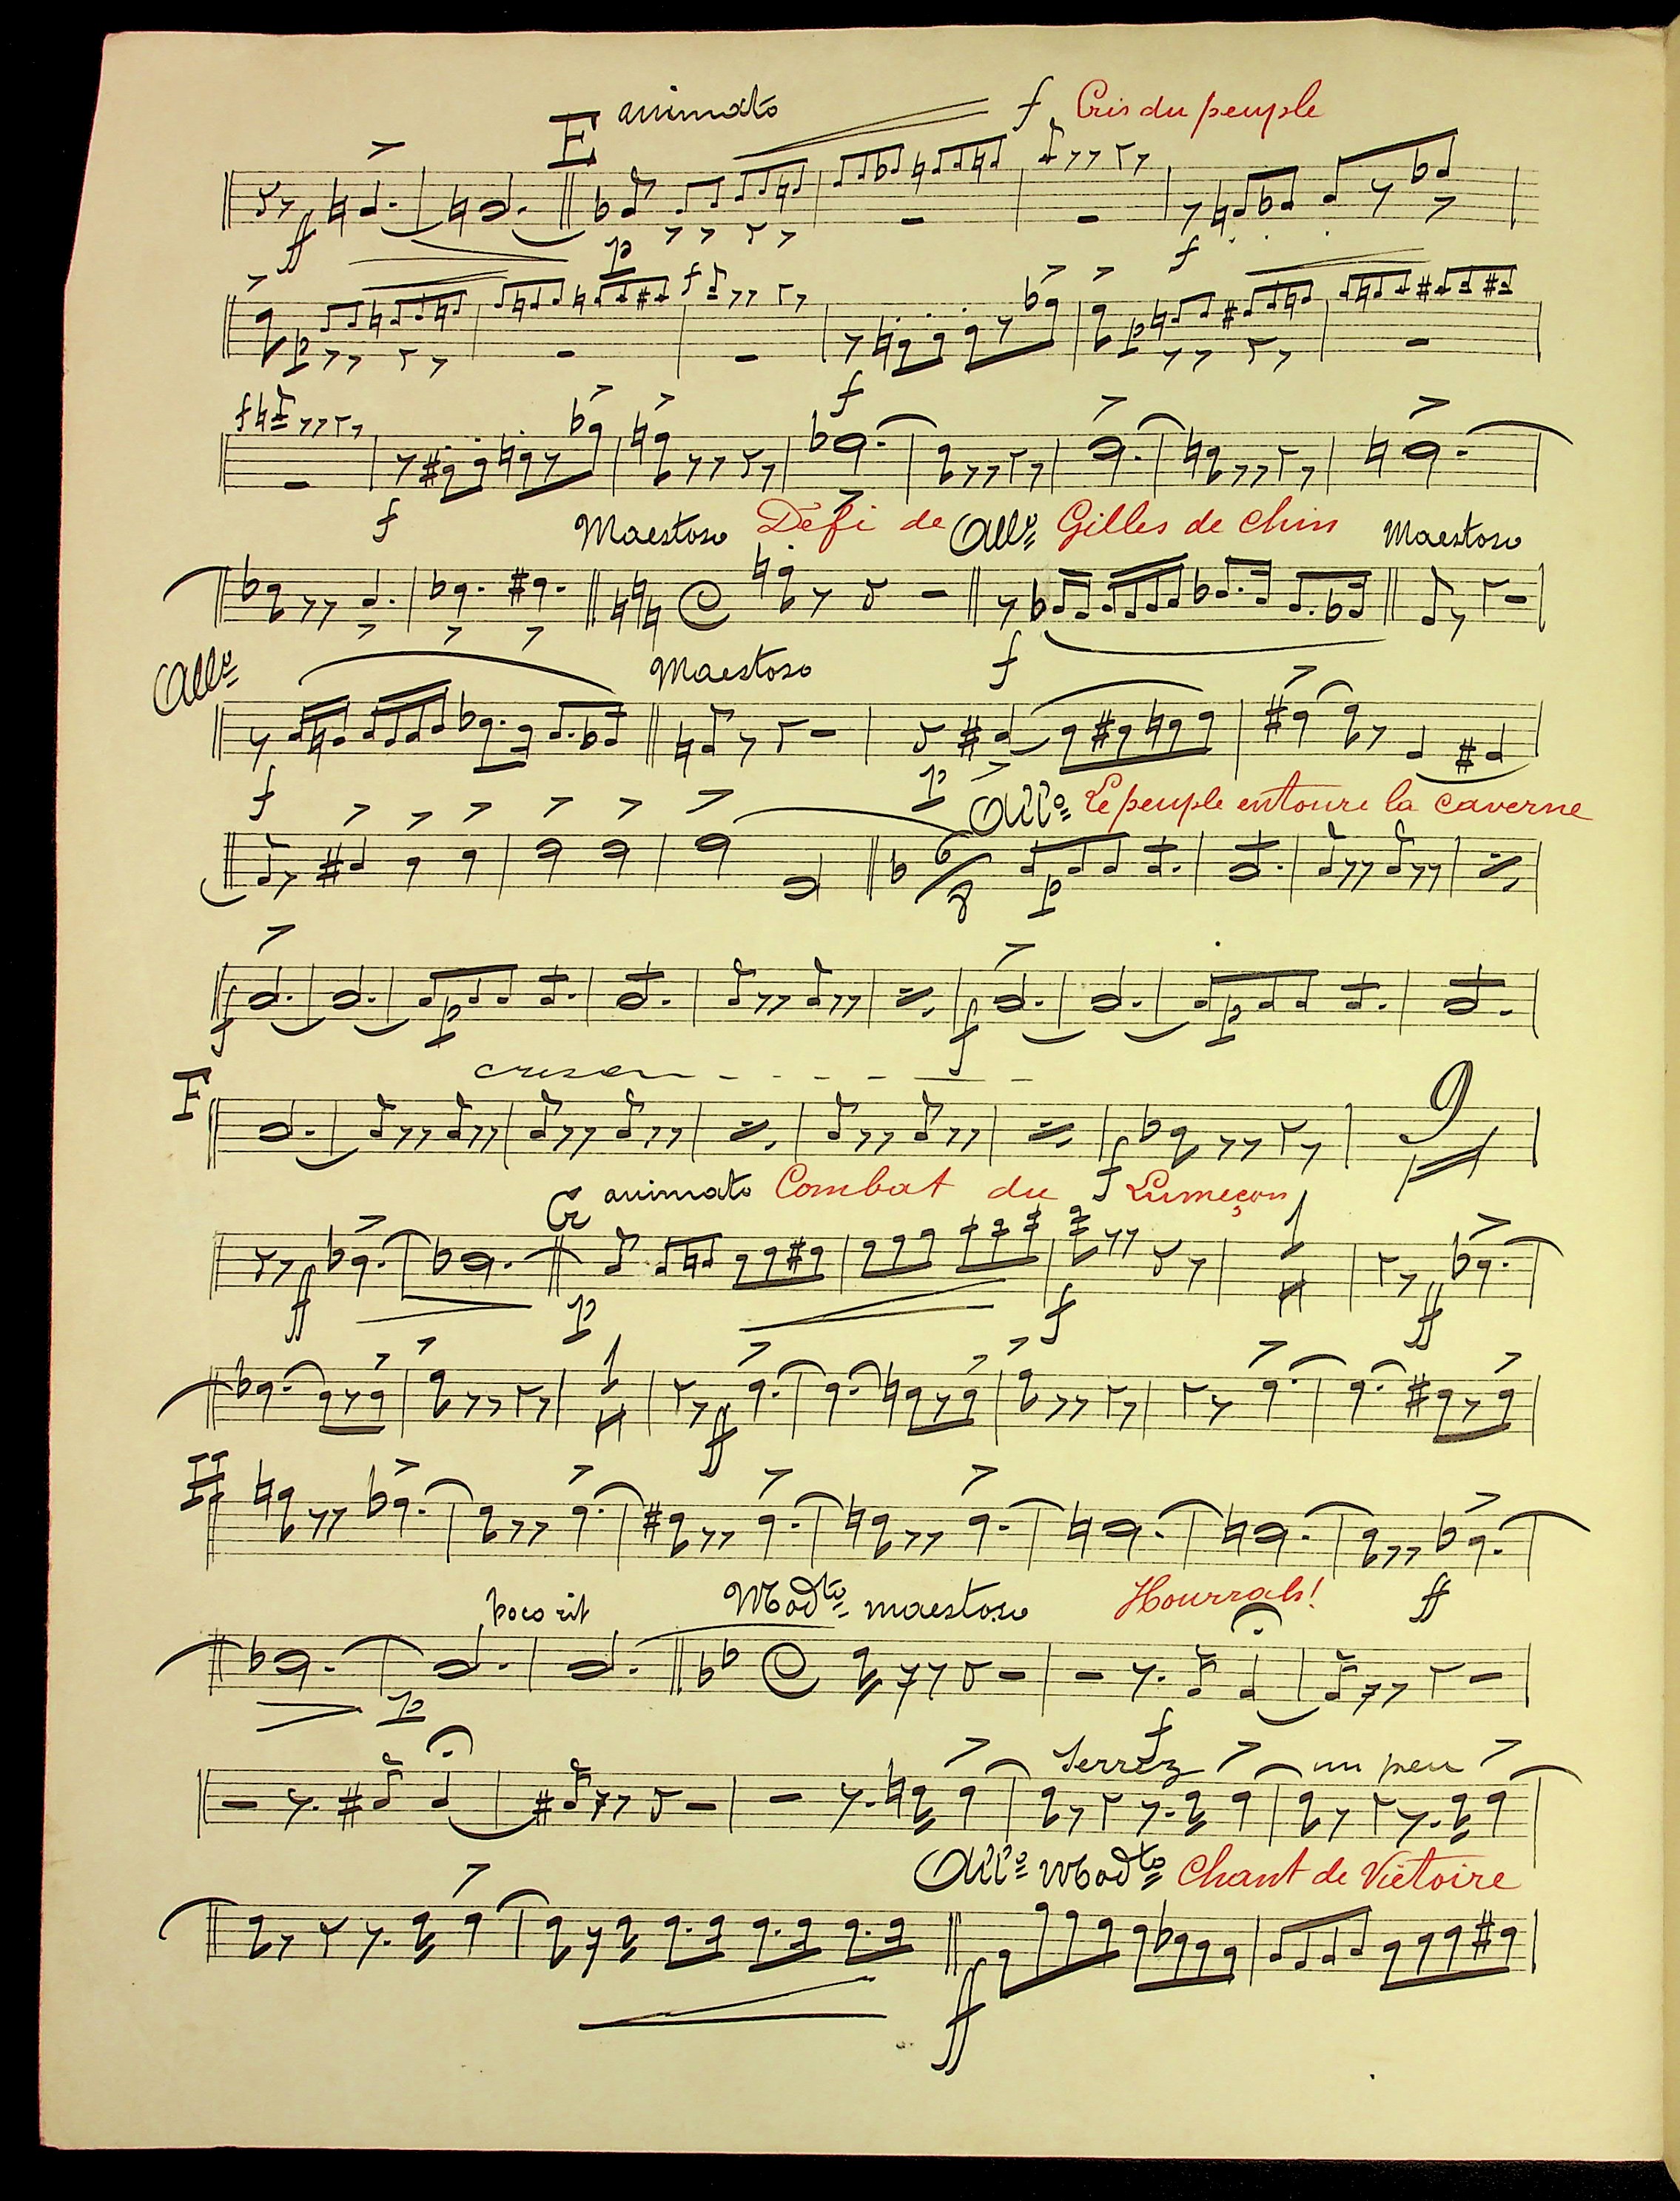 E animato f Cris du peuple
ff p f
p f p
f
f f
Maestoso Défi de All° Gilles de Chin Maestoso
f
All° Maestoso
f p
All° Le peuple entoure la caverne
6/8 p
f p f p
F cresc
f 9
G animato Combat du Lumeçon 1
ff p f ff
1
ff
H
ff
poco rit Modto maestoso Hourrah!
p f
Serrez un peu
All° Modto Chant de Victoire
ff